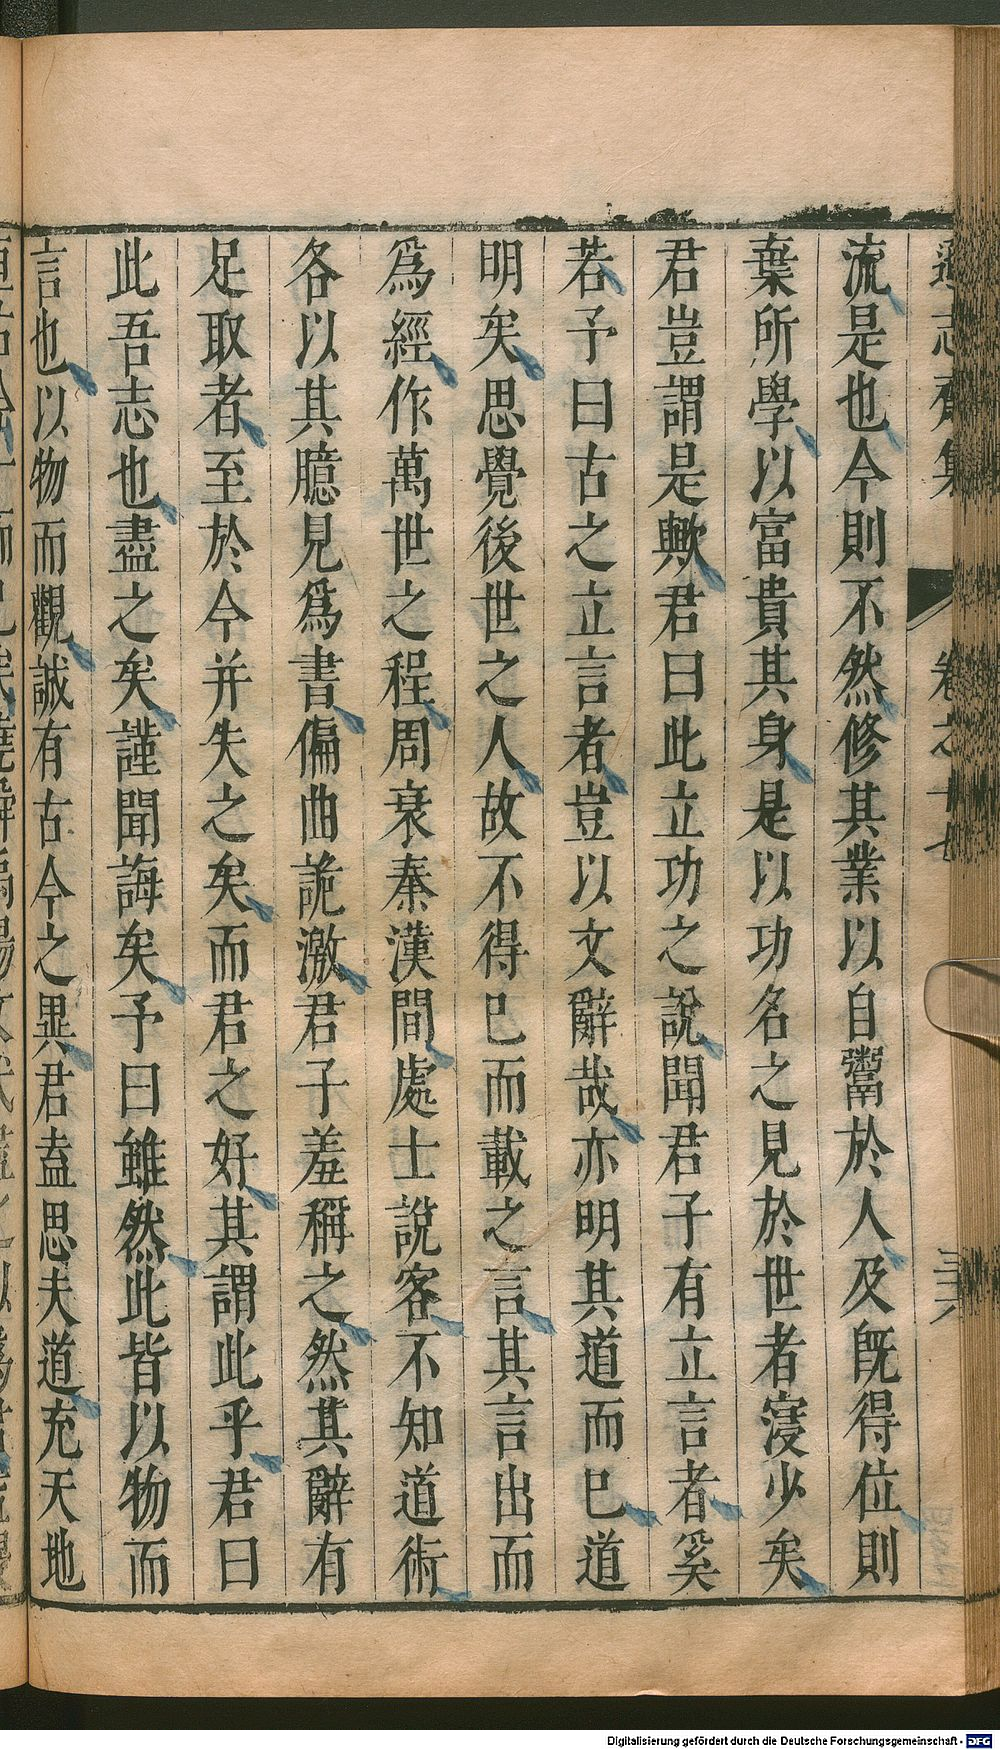 遜志齋集 卷之十七 三十六
流是也今則不然修其業以自鬻於人及旣得位則
棄所學以富貴其身是以功名之見於世者寖少矣
君豈謂是歟君曰此立功之說聞君子有立言者奚
若予曰古之立言者豈以文辭哉亦明其道而已道
明矣思覺後世之人故不得已而載之言其言出而
爲經作萬世之程周衰秦漢間處士說客不知道術
各以其臆見爲書偏曲詭激君子羞稱之然其辭有
足取者至於今并失之矣而君之好其謂此乎君曰
此吾志也盡之矣謹聞誨矣予曰雖然此皆以物而
言也以物而觀誠有古今之異君盍思夫道充天地
Digitalisierung gefördert durch die Deutsche Forschungsgemeinschaft - DFG